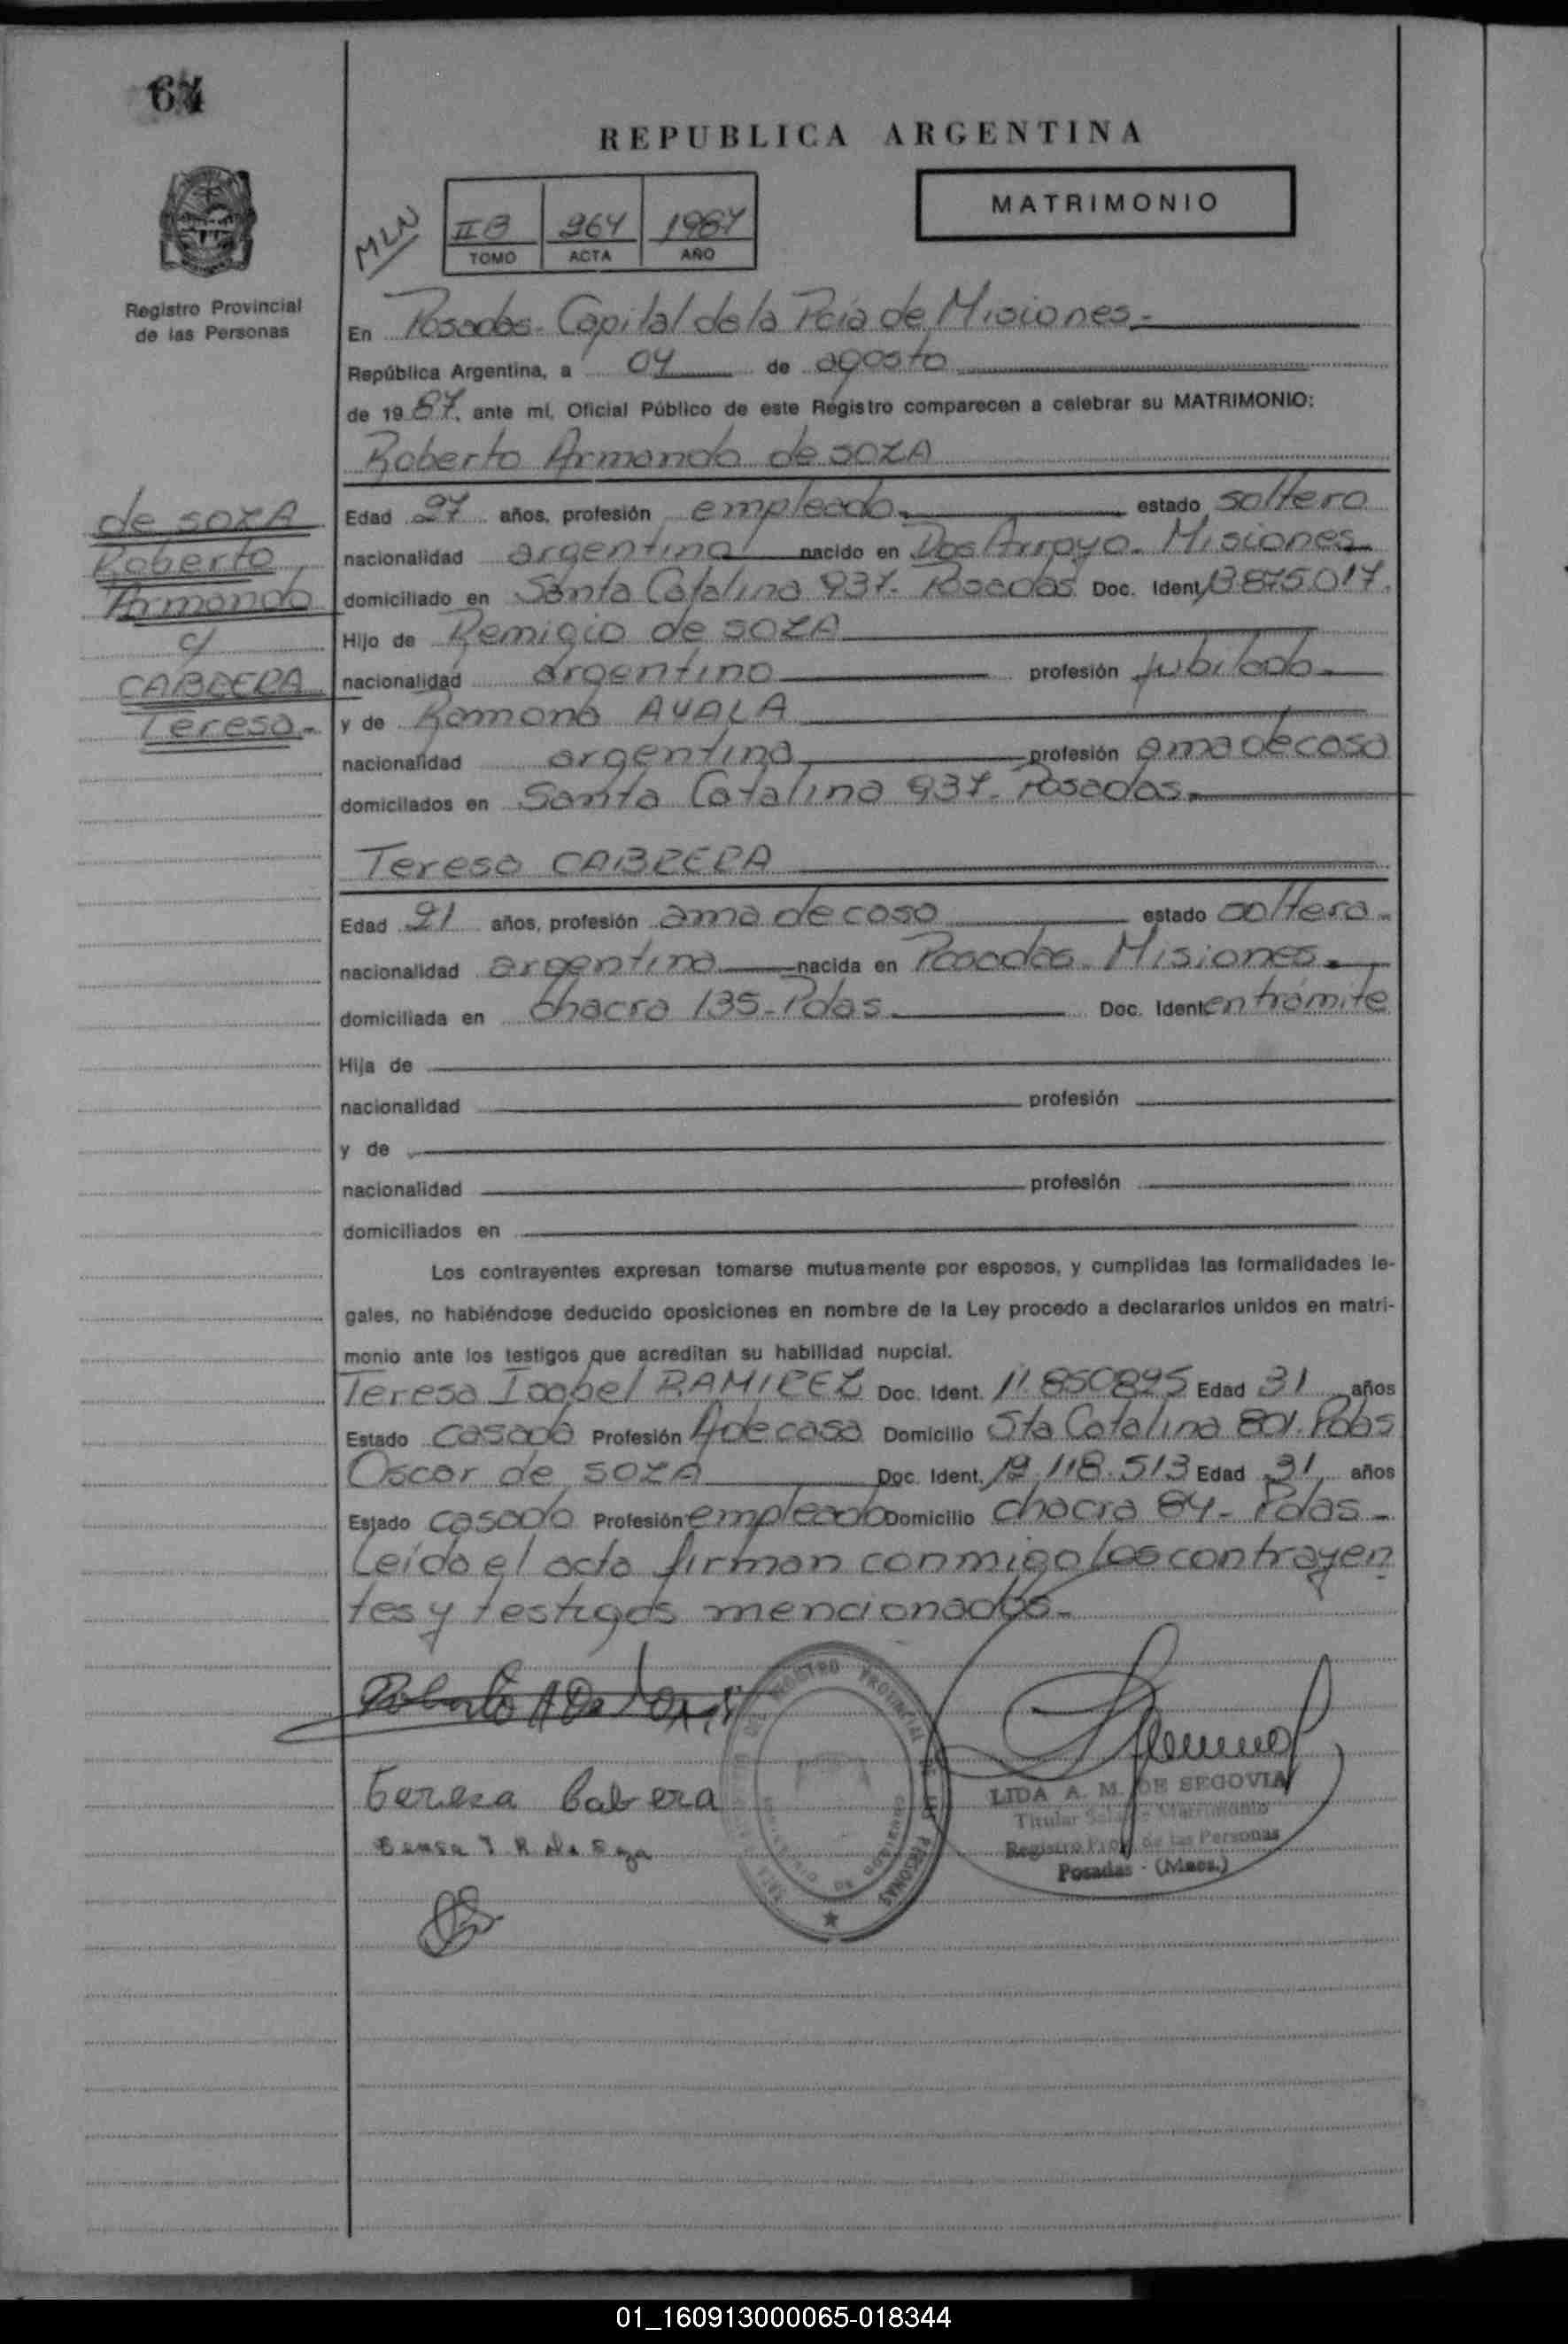 64
REPUBLICA ARGENTINA
MATRIMONIO
MLN
II B 964 1987
TOMO ACTA AÑO
Registro Provincial
de las Personas
En Posadas - Capital de la Pcia de Misiones.-
República Argentina, a 04 de agosto
de 19 87, ante mí, Oficial Público de este Registro comparecen a celebrar su MATRIMONIO:
Roberto Armando de SOZA
de SOZA
Roberto
Armando
c/
CABRERA
Teresa.-
Edad 27 años, profesión empleado.- estado soltero
nacionalidad argentina nacido en Dos Arroyo - Misiones
domiciliado en Santa Catalina 937 - Posadas Doc. Ident. 13.875.017.
Hijo de Remigio de SOZA
nacionalidad argentino profesión jubilado.-
y de Ramona AYALA
nacionalidad argentina profesión ama de casa
domiciliados en Santa Catalina 937 - Posadas.-
Teresa CABRERA
Edad 21 años, profesión ama de casa estado soltera.-
nacionalidad argentina nacida en Posadas - Misiones.-
domiciliada en Chacra 135 - Pdas. Doc. Ident. en trámite
Hija de
nacionalidad profesión
y de
nacionalidad profesión
domiciliados en
Los contrayentes expresan tomarse mutuamente por esposos, y cumplidas las formalidades le-
gales, no habiéndose deducido oposiciones en nombre de la Ley procedo a declararlos unidos en matri-
monio ante los testigos que acreditan su habilidad nupcial.
Teresa Isabel RAMIREZ Doc. Ident. 11.850895 Edad 31 años
Estado casada Profesión A de casa Domicilio Sta Catalina 801. Pdas
Oscar de SOZA Doc. Ident. 12.118.513 Edad 31 años
Estado casado Profesión empleado Domicilio chacra 84 - Pdas.-
Leída el acta firman conmigo los contrayen
tes y testigos mencionados.-
Teresa Cabrera
LIDA A. M. DE SEGOVIA
Titular Matrimonio
Registro Prov. de las Personas
Posadas - (Mnes.)
01_160913000065-018344